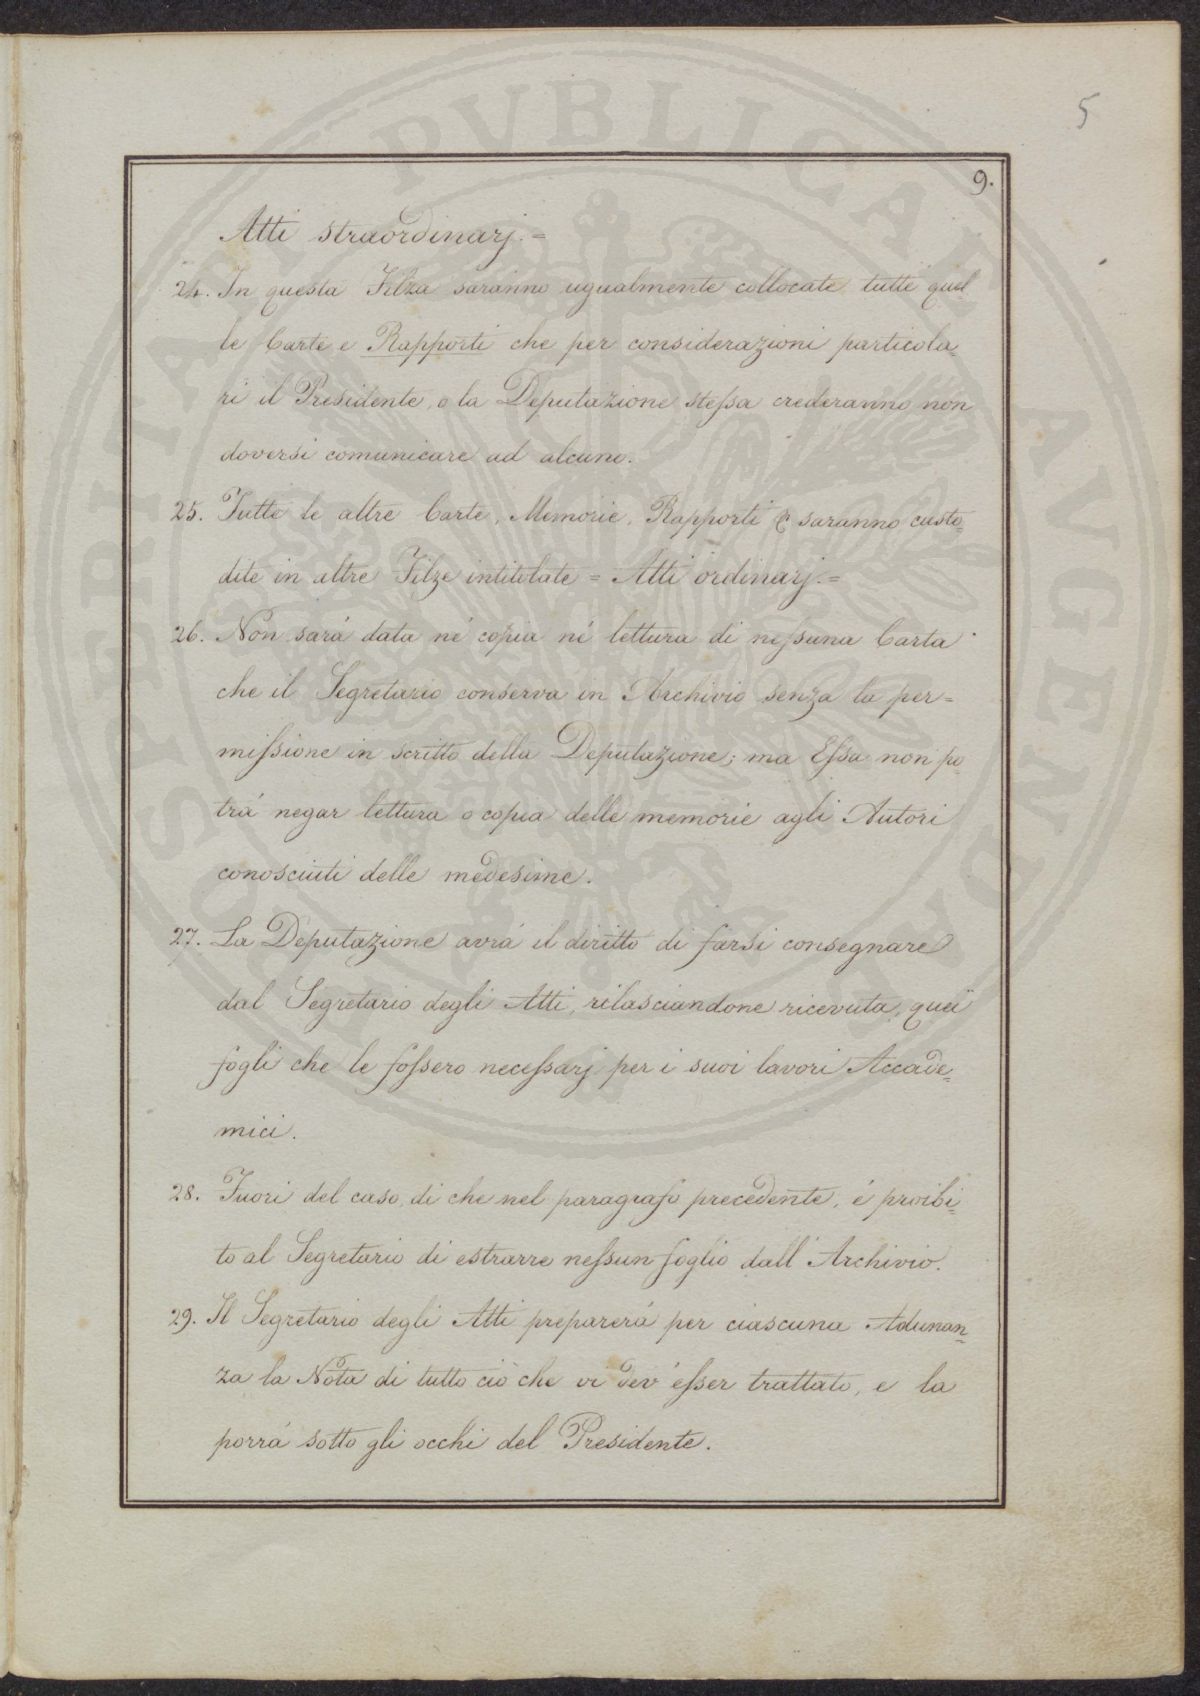 5
9.
Atti straordinarj.=
24. In questa Filza saranno ugualmente collocate tutte quel
le Carte e Rapporti che per considerazioni particola=
ri il Presidente, o la Deputazione stessa crederanno non
doversi comunicare ad alcuno.
25. Tutte le altre Carte, Memorie, Rapporti & saranno custo=
dite in altre Filze intitolate = Atti ordinarj.=
26. Non sarà data nè copia nè lettura di nessuna Carta
che il Segretario conserva in Archivio senza la per=
missione in scritto della Deputazione; ma Essa non po=
trà negar lettura o copia delle memorie agli Autori
conosciuti delle medesime.
27. La Deputazione avrà il diritto di farsi consegnare
dal Segretario degli Atti, rilasciandone ricevuta, quei
fogli che le fossero necessarj per i suoi lavori Accade=
mici.
28. Fuori del caso, di che nel paragrafo precedente, è proibi=
to al Segretario di estrarre nessun foglio dall'Archivio.
29. Il Segretario degli Atti preparerà per ciascuna Adunan=
za la Nota di tutto ciò che vi dev'esser trattato, e la
porrà sotto gli occhi del Presidente.
PVBLICAE